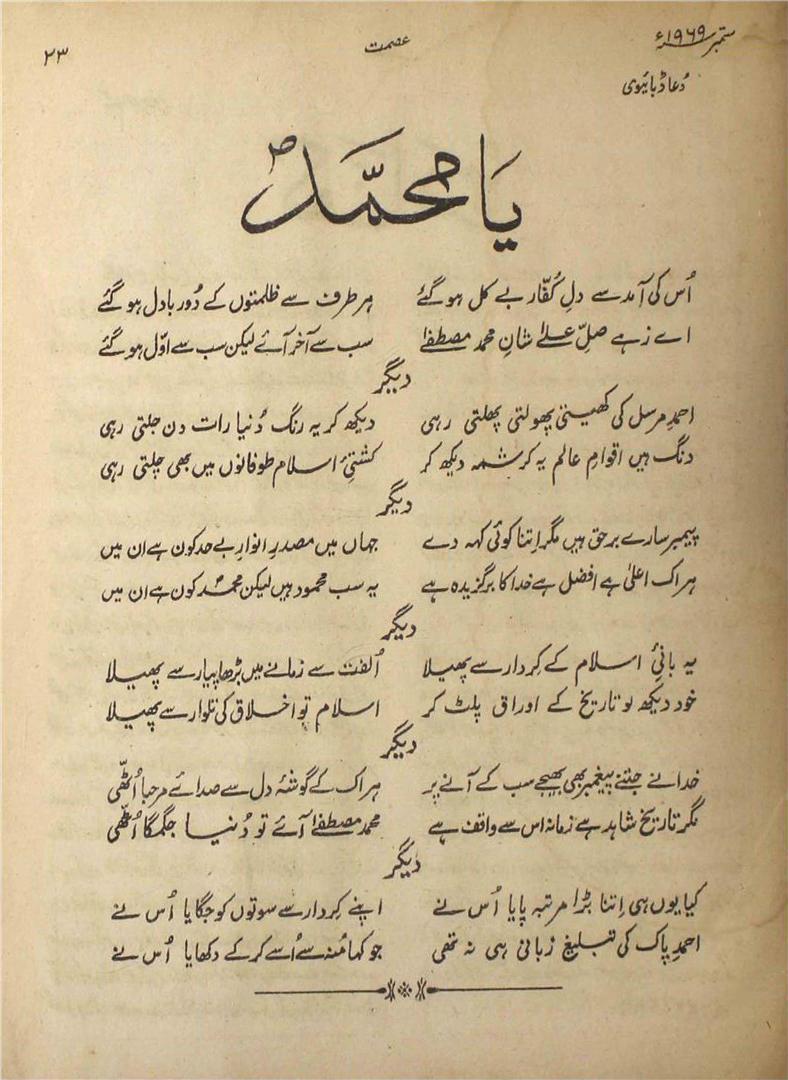 ستمبر ۱۹۶۹ء
عصمت
۲۳
دُعا ڈبائیوی
یَا محمّد ؐ
اُس کی آمد سے دلِ کُفّار بے کل ہو گئے ہر طرف سے ظلمتوں کے دُور بادل ہو گئے
اے زہے صلِّ علیٰ شانِ محمد مصطفےٰ سب سے آخر آئے لیکن سب سے اوّل ہو گئے
دیگر
احمدِ مرسل کی کھیتی پھولتی پھلتی رہی دیکھ کر یہ رنگ دُنیا رات دن جلتی رہی
دنگ ہیں اقوامِ عالم یہ کرشمہ دیکھ کر کشتیٔ اسلام طوفانوں میں بھی چلتی رہی
دیگر
پیمبر سارے برحق ہیں مگر اِتنا کوئی کہہ دے جہاں میں مصدرِ انوارِ بے حد کون ہے ان میں
ہر اک اعلیٰ ہے افضل ہے خدا کا برگزیدہ ہے یہ سب محمود ہیں لیکن محمدؐ کون ہے ان میں
دیگر
یہ بانیٔ اسلام کے کِردار سے پھیلا اُلفت سے زمانے میں بڑھا پیار سے پھیلا
خود دیکھ لو تاریخ کے اوراق پلٹ کر اسلام تو اخلاق کی تلوار سے پھیلا
دیگر
خدا نے جتنے پیغمبر بھی بھیجے سب کے آنے پر ہر اک کے گوشۂ دل سے صدائے مرحبا اُٹھّی
مگر تاریخ شاہد ہے زمانہ اس سے واقف ہے محمد مصطفےٰ آئے تو دُنیا جگمگا اُٹھّی
دیگر
کیا یوں ہی اِتنا بڑا مرتبہ پایا اُس نے اپنے کِردار سے سوتوں کو جگایا اُس نے
احمدِ پاک کی تبلیغ زبانی ہی نہ تھی جو کہا مُنہ سے اُسے کر کے دکھایا اُس نے